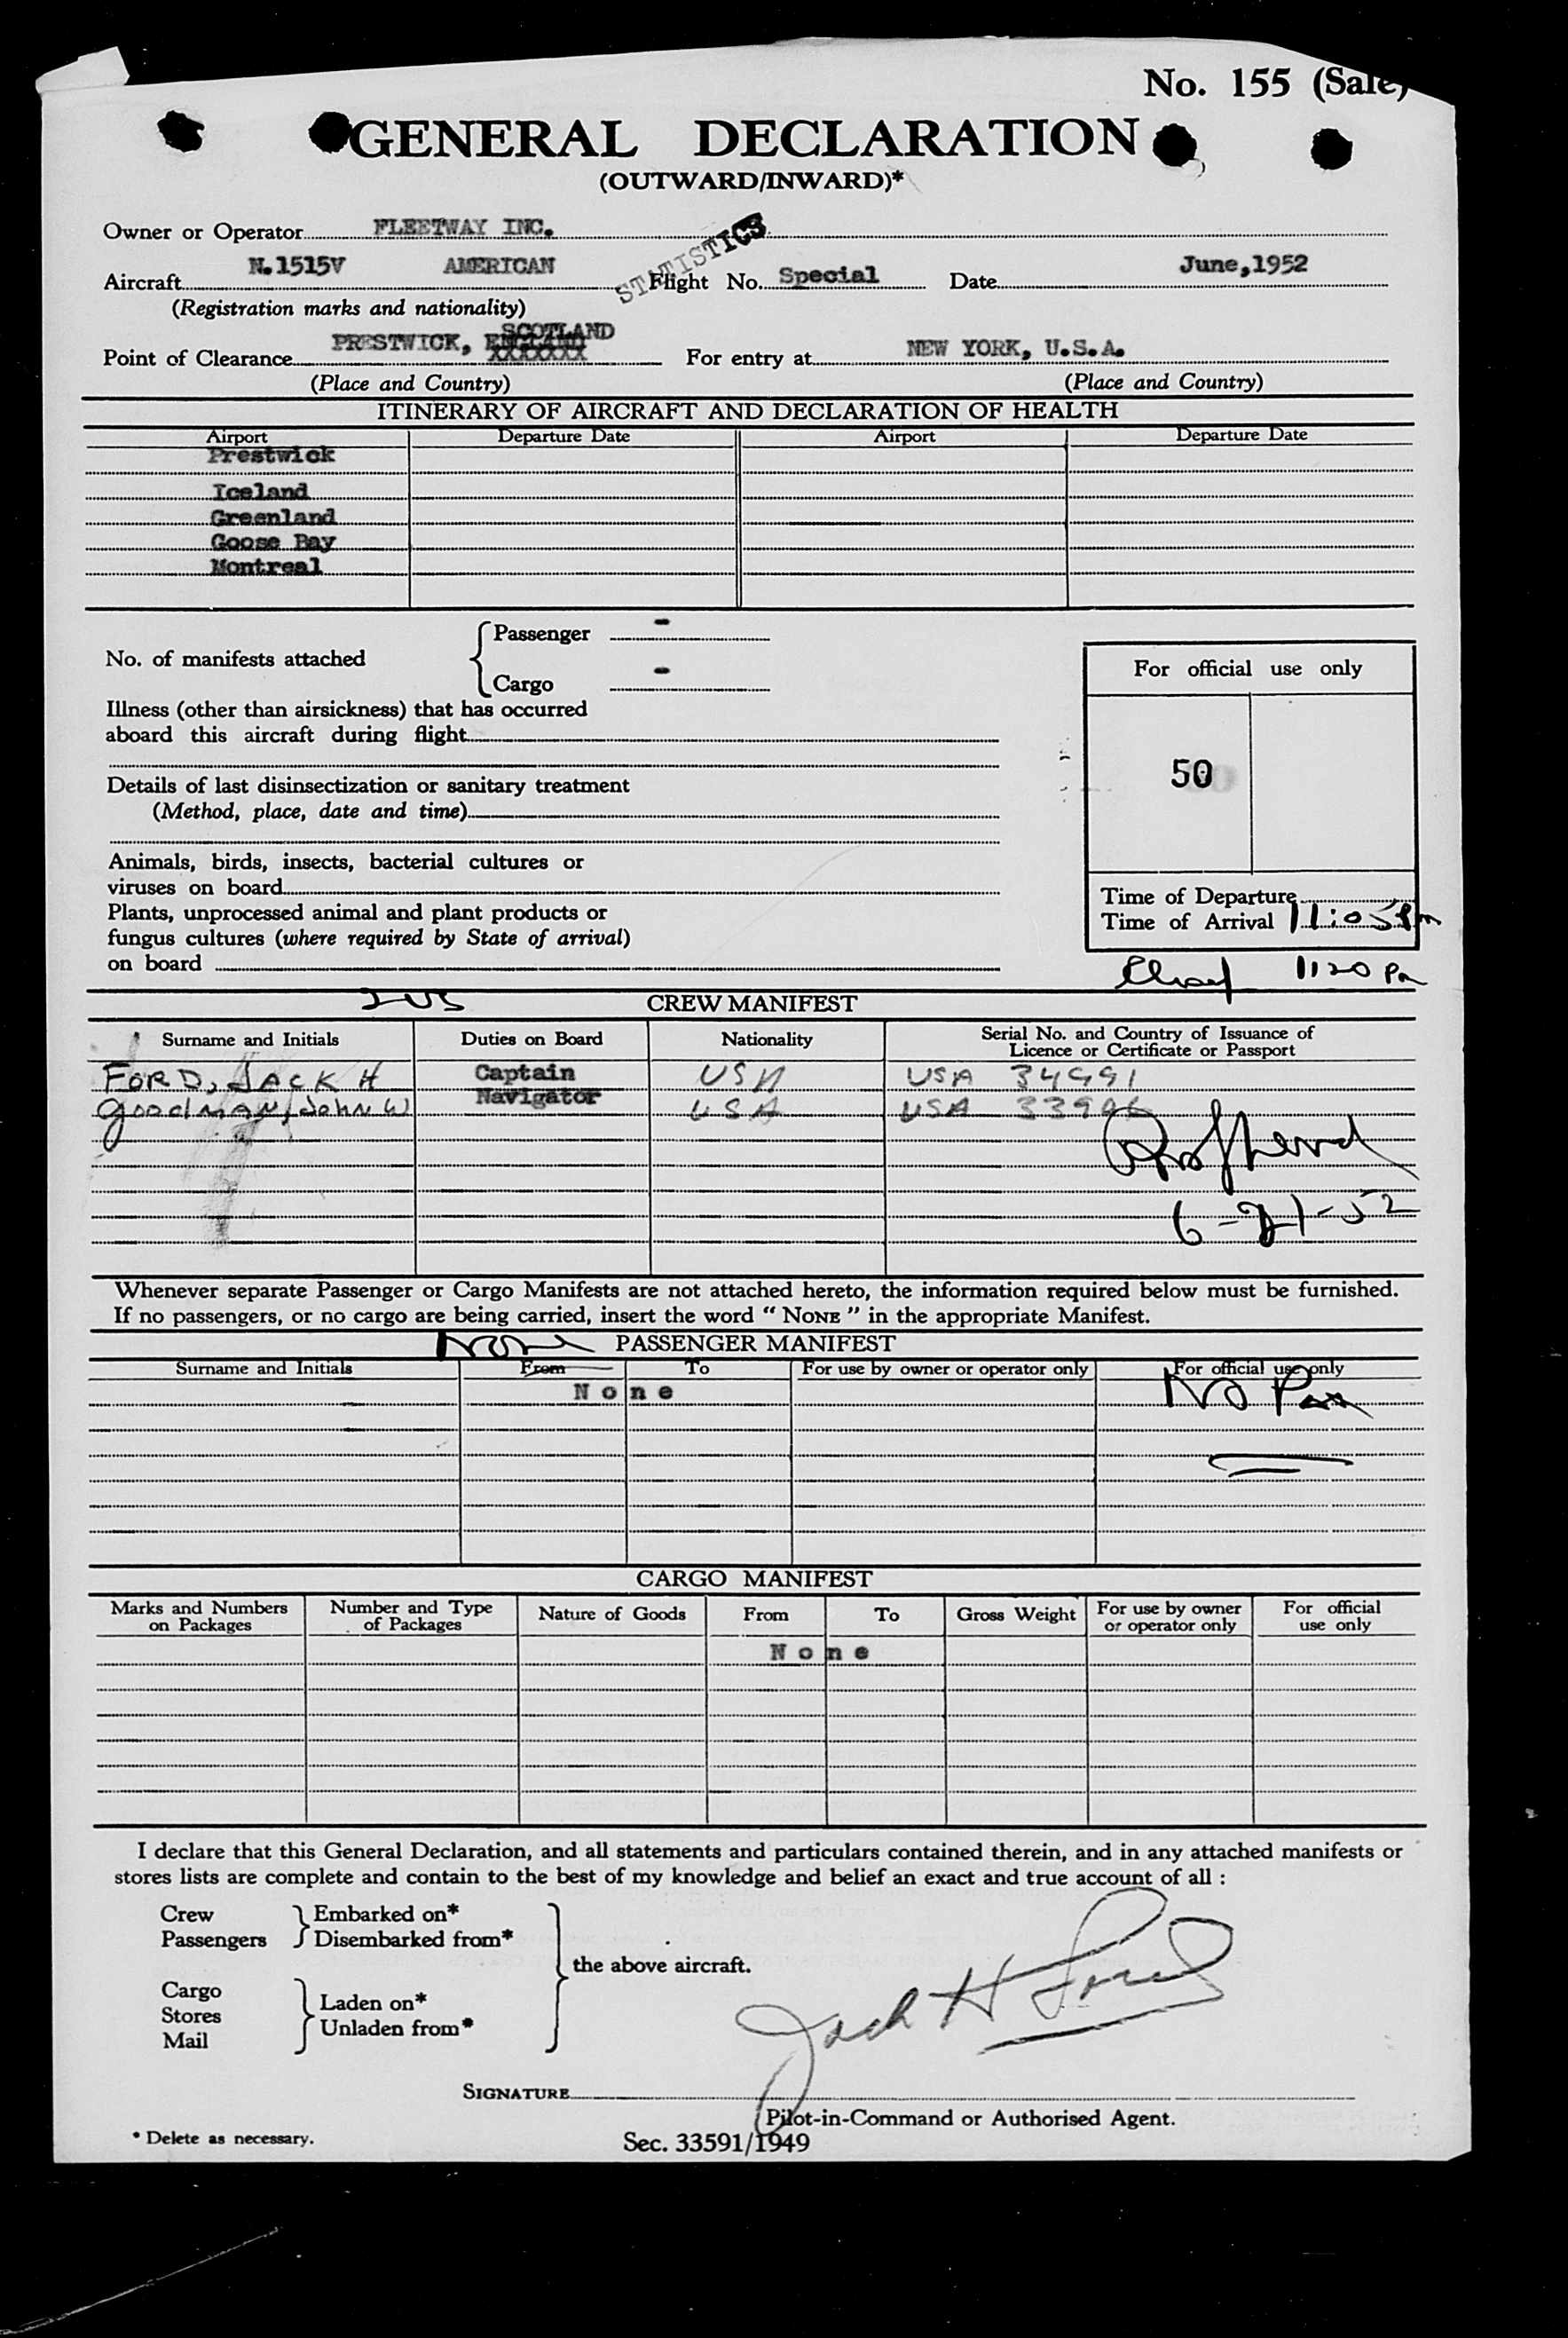 No. 155 (Sale)
GENERAL DECLARATION
(OUTWARD/INWARD)*
Owner or Operator FLEETWAY INC.
STATISTICS
Aircraft N.1515V AMERICAN Flight No. Special Date June,1952
(Registration marks and nationality)
SCOTLAND
Point of Clearance PRESTWICK, ENGLAND For entry at NEW YORK, U.S.A.
XXXXXXX
(Place and Country) (Place and Country)
ITINERARY OF AIRCRAFT AND DECLARATION OF HEALTH
Airport Departure Date Airport Departure Date
Prestwick
Iceland
Greenland
Goose Bay
Montreal
No. of manifests attached
Passenger -
Cargo -
Illness (other than airsickness) that has occurred
aboard this aircraft during flight
Details of last disinsectization or sanitary treatment
(Method, place, date and time)
Animals, birds, insects, bacterial cultures or
viruses on board
Plants, unprocessed animal and plant products or
fungus cultures (where required by State of arrival)
on board
For official use only
50
Time of Departure
Time of Arrival 11:05 Pm
1120 Pm
CREW MANIFEST
Surname and Initials Duties on Board Nationality Serial No. and Country of Issuance of
Licence or Certificate or Passport
FORD, JACK H Captain USA USA 34991
Goodman, John W Navigator USA USA
6-21-52
Whenever separate Passenger or Cargo Manifests are not attached hereto, the information required below must be furnished.
If no passengers, or no cargo are being carried, insert the word "NONE" in the appropriate Manifest.
None PASSENGER MANIFEST
Surname and Initials From To For use by owner or operator only For official use only
None No Pax
CARGO MANIFEST
Marks and Numbers on Packages Number and Type of Packages Nature of Goods From To Gross Weight For use by owner or operator only For official use only
None
I declare that this General Declaration, and all statements and particulars contained therein, and in any attached manifests or
stores lists are complete and contain to the best of my knowledge and belief an exact and true account of all :
Crew Embarked on*
Passengers Disembarked from*
the above aircraft.
Cargo
Stores Laden on*
Mail Unladen from*
Jack H Ford
SIGNATURE
Pilot-in-Command or Authorised Agent.
* Delete as necessary.
Sec. 33591/1949